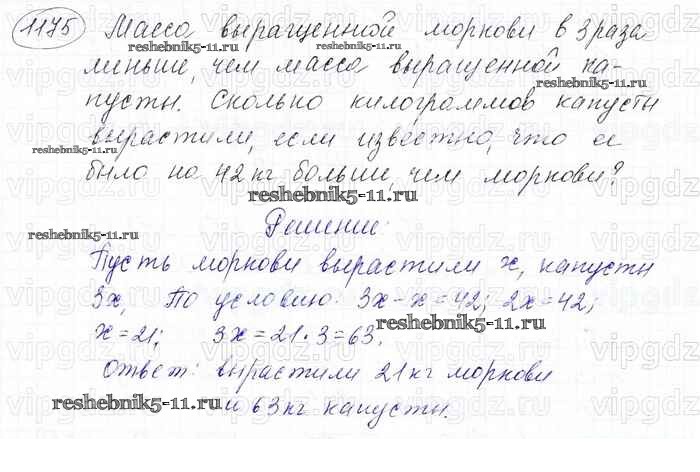 1175 Масса выращенной моркови в 3 раза
reshebnik5-11.ru reshebnik5-11.ru
меньше, чем масса выращенной ка-
reshebnik5-11.ru
пусты. Сколько килограммов капусты
вырастили, если известно, что ее
reshebnik5-11.ru
было на 42 кг больше, чем моркови?
reshebnik5-11.ru
Решение:
reshebnik5-11.ru
Пусть моркови вырастили x, капусты
3x, По условию: 3x - x = 42; 2x = 42;
reshebnik5-11.ru
x = 21; 3x = 21 · 3 = 63.
Ответ: вырастили 21 кг моркови
reshebnik5-11.ru и 63 кг капусты.